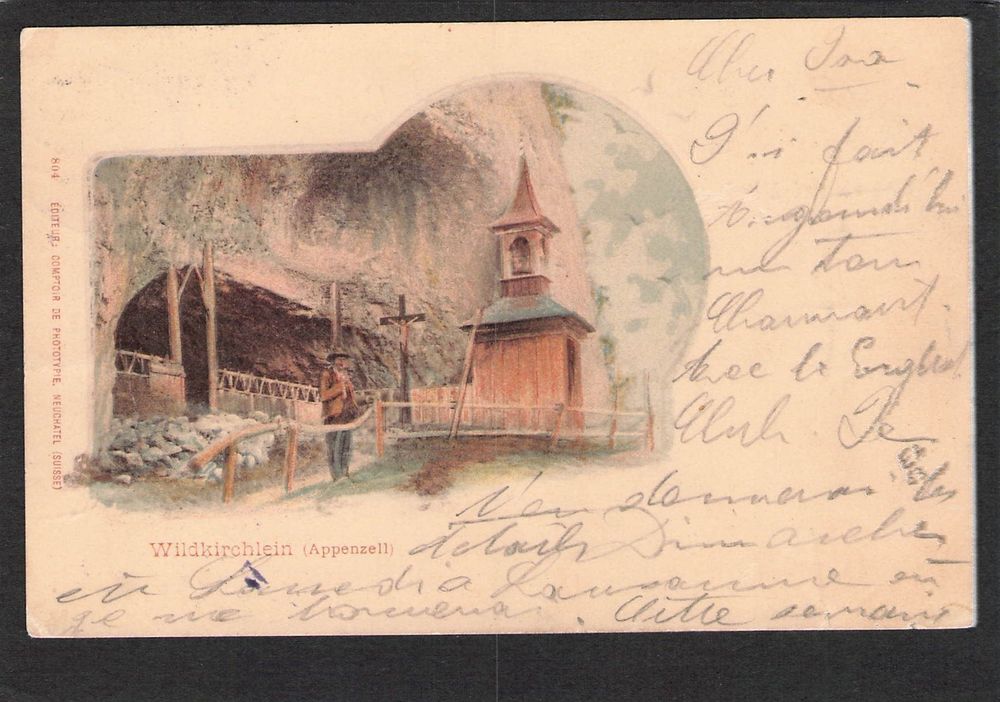 804 ÉDITEUR: COMPTOIR DE PHOTOTYPIE, NEUCHATEL (SUISSE)
Wildkirchlein (Appenzell)
J'ai fait
un tour
Charmant.
Avec le English
Club. Je
t'en donnerai des
details Dimanche
ou Samedi a Lausanne ou
je me trouverai. Cette semaine